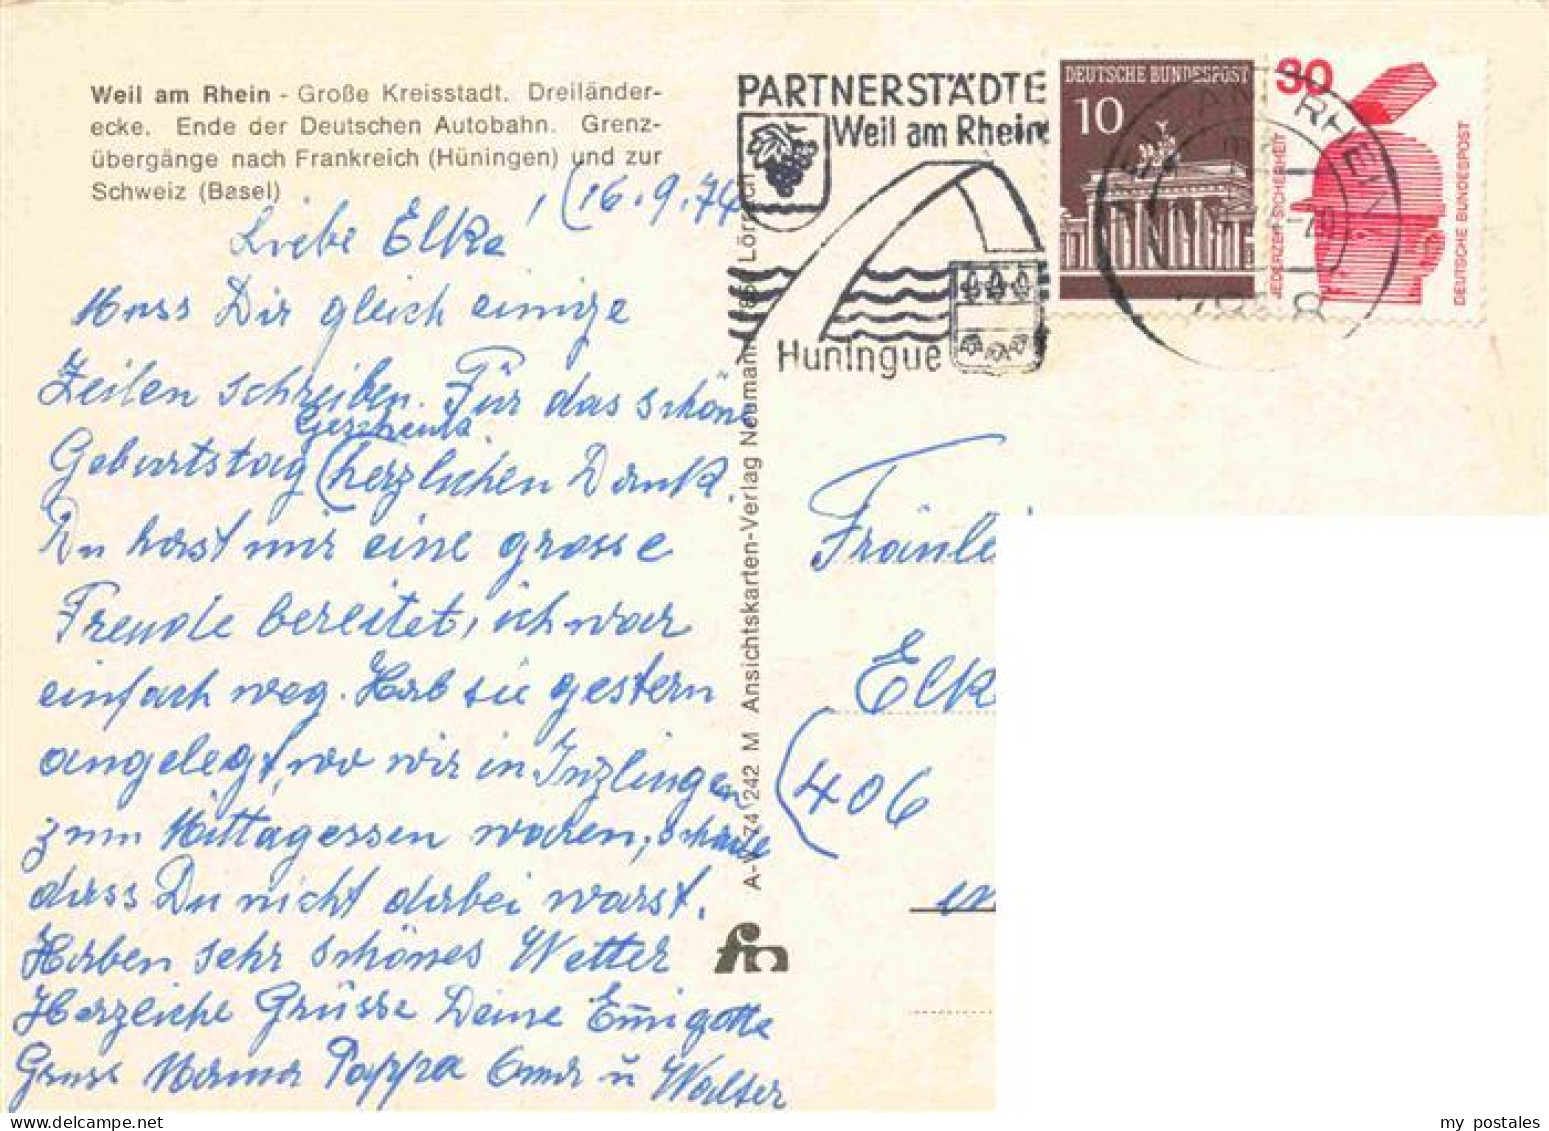 Weil am Rhein - Große Kreisstadt. Dreiländer-
ecke. Ende der Deutschen Autobahn. Grenz-
übergänge nach Frankreich (Hüningen) und zur
Schweiz (Basel)
16.9.74
Liebe Elke!
Muss Dir gleich einige
Zeilen schreiben. Für das schöne
Geschenk
Geburtstag (herzlichen Dank.
Du hast mir eine grosse
Freude bereitet, ich war
einfach weg. Hab sie gestern
angelegt, wo wir in Inzlingen
zum Mittagessen waren, schade
dass Du nicht dabei warst.
Haben sehr schönes Wetter
Herzliche Grüsse Deine Em̅igotte
Gruss Mama Pappa Oma u Walter
A-W 74 242 M Ansichtskarten-Verlag Neumann 7858 Lörrach
fm
PARTNERSTÄDTE
Weil am Rhein
Huningue
DEUTSCHE BUNDESPOST
10
30
JEDERZEIT SICHERHEIT
DEUTSCHE BUNDESPOST
WEIL AM RHEIN
7858
Fräulei
Elk
(406
my postales